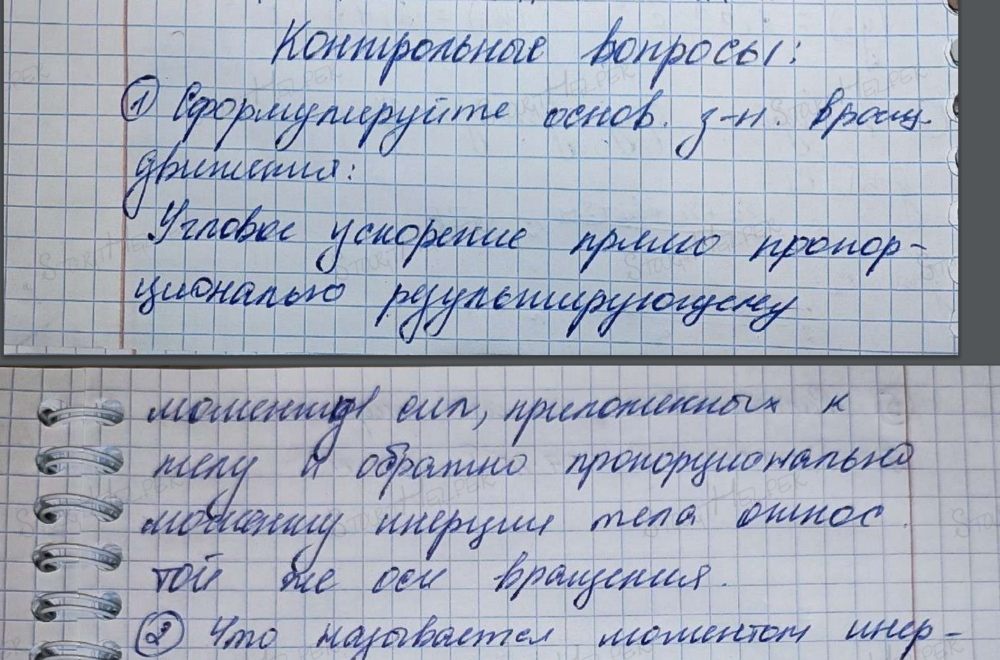 Контрольные вопросы:
① Сформулируйте основ. з-н. вращ.
движения:
Угловое ускорение прямо пропор-
ционально результирующему
моменту сил, приложенных к
телу и обратно пропорционально
моменту инерции тела относ.
той же оси вращения.
② Что называется моментом инер-